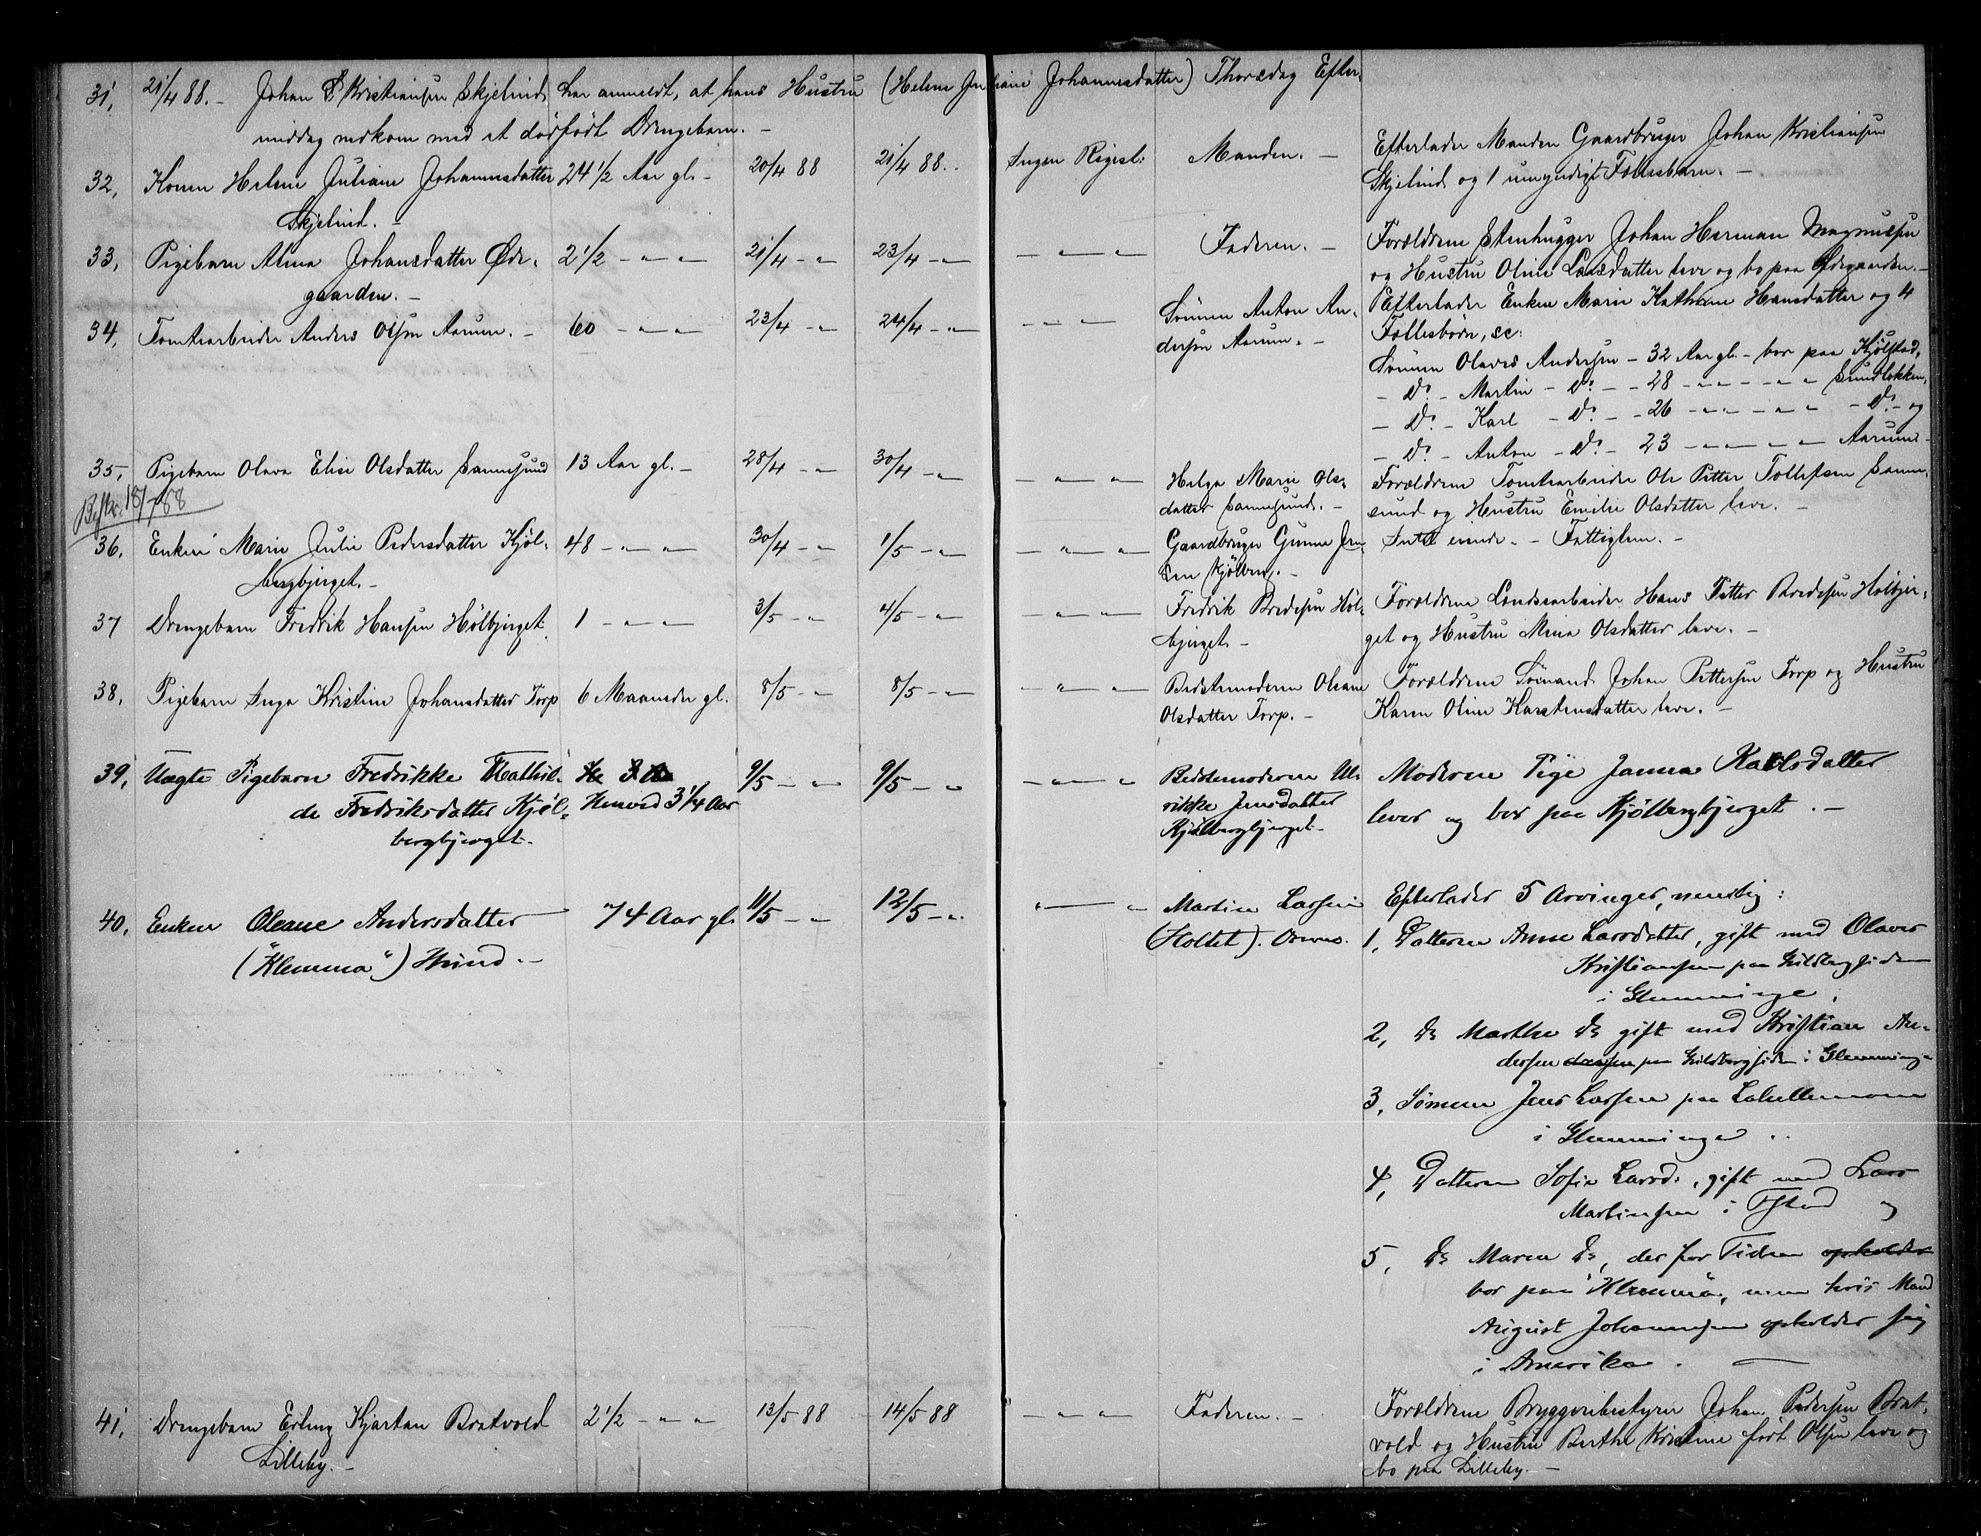 31, 21/4 88. – Johan Kristiansen Skjelind, har anmeldt, at hans Hustru (Helene Juliane Johannesdatter) Thorsdag Efter-
middag nedkom med et dødfødt Drengebarn. –
32, Konen Helene Juliane Johannesdatter 24 1/2 Aar gl. – 20/4 88 21/4 88. Ingen Regist: Manden. – Efterlader Manden Gaardbruger Johan Kristiansen
Skjelind. – Skjelind og 1 umyndigt Fællesbarn. –
33, Pigebarn Alma Johansdatter Øde- 2 1/2 – " – " 21/4 – " 23/4 – " – " – " Faderen. – Forældrene Stenhugger Johan Herman Magnussen
gaarden. – og Hustru Oline Larsdatter leve og bo paa Ødegaarden. –
34, Tomtearbeider Anders Olsen Aarum. – 60 – " – " 23/4 – " 24/4 – " – " – " Sønnen Anton An- Efterlader Enken Marie Kathrine Hansdatter og 4
dersen Aarum. – Fællesbørn, sc:
Sønnen Olaves Andersen – 32 Aar gl. – bor paa Kjølstad,
– Do – Martin – Do – 28 – " – " – " Sundløkken,
– Do – Karl – Do – 26 – " – " – " – Do – og
– Do – Anton – Do – 23 – " – " – " Aarum. –
35, Pigebarn Olava Elise Olsdatter Sannesund 13 Aar gl. – 28/4 – " 30/4 – " – " – " Helga Marie Ols- Forældrene Tomtearbeider Ole Petter Tollefsen Sanne-
datter Sannesund. – sund og Hustru Emilie Olsdatter leve. –
18/7 88
36, Enken Marie Julie Pedersdatter Kjøl- 48 – " – " 30/4 – " 1/5 – " – " – " Gaardbruger Gunne Jen- Intet eiende. – Fattiglem. –
bergbjerget. – sen Kjølberg. –
37 Drengebarn Fredrik Hansen Hølbjerget 1 – " – " 3/5 – " 4/5 – " – " – " Fredrik Bredesen Høl- Forældrene Landsarbeider Hans Petter Bredesen Hølbjer-
bjerget. – get og Hustru Mina Olsdatter leve. –
38, Pigebarn Inga Kristine Johansdatter Torp 6 Maaneder gl. 8/5 – " 8/5 – " – " – " Bedstemoderen Oleane Forældrene Sømand Johan Pettersen Torp og Hustru
Olsdatter Torp. – Karen Oline Karstensdatter leve. –
39, Uægte Pigebarn Fredrikke Mathil- 9/5 – " 9/5 – " – " – " Bedstemoderen Ul- Moderen Pige Janna Karlsdatter
de Fredriksdatter Kjøl- Henved 3 1/4 Aar rikke Jensdatter lever og bor paa Kjølbergbjerget. –
bergbjerget. – Kjølbergbjerget. –
40, Enken Oleane Andersdatter 74 Aar gl. 11/5 – " 12/5 – " " – " Martin Larsen Efterlader 5 Arvinger, nemlig:
("Klemma") Hund. – (Holtet). 1, Datteren Anne Larsdatter, gift med Olaves
Kristiansen paa
i Glemminge,
2, Do Marthe Do gift med Kristian An-
dersen Larsen paa i Glemminge
3, Sønnen Jens Larsen paa
i Glemminge
4, Datteren Sofie Larsd:, gift med Lars
Martinsen i og
5, Do Maren Do, der for Tiden opholder
bor paa "Klemma", men hvis Mand
August Johannesen opholder sig
i Amerika. –
41, Drengebarn Erling Kjartan Bratvold 2 1/2 – " – " 13/5 88 14/5 88 – " – " Faderen. – Forældrene Bryggeribestyrer Johan Pedersen Brat-
Lilleby. – vold og Hustru Berthe Kristine født Olsen leve og
bo paa Lilleby. –